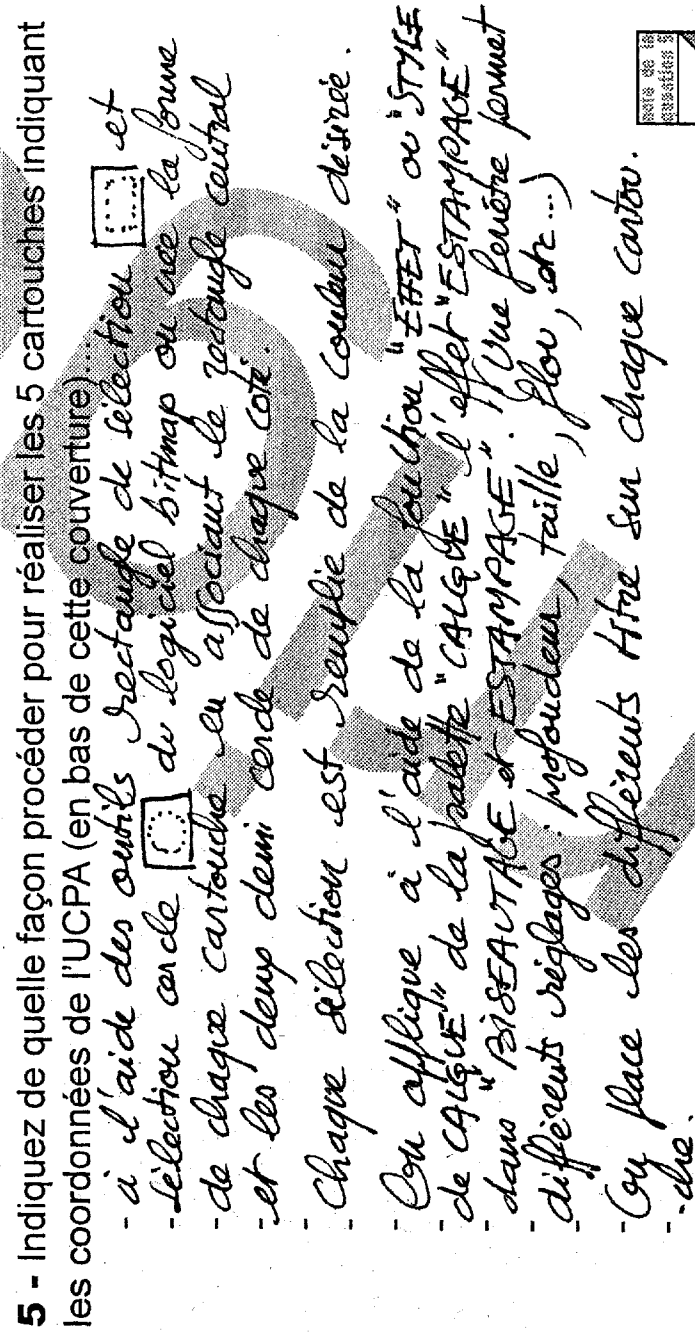 5 - Indiquez de quelle façon procéder pour réaliser les 5 cartouches indiquant
les coordonnées de l'UCPA (en bas de cette couverture)....
- à l'aide des outils rectangle de sélection et
- sélection cercle du logiciel bitmap on crée la forme
- de chaque cartouche en associant le rectangle central
- et les deux demi cercle de chaque coté.
- Chaque sélection est remplie de la couleur désirée.
- On applique à l'aide de la fonction "EFFET" ou "STYLE
- de CALQUE" de la palette "CALQUE" l'effet "ESTAMPAGE"
- dans "BISEAUTAGE et ESTAMPAGE". (Une fenêtre permet
- différents réglages : profondeur, taille, flou, etc...)
- On place les différents titre sur chaque cartou.
- -che.
note de la
question 5